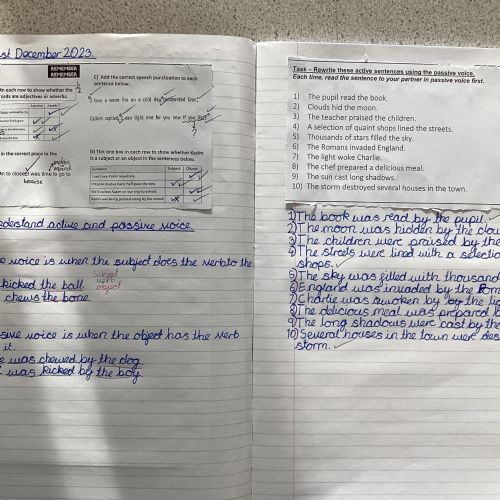 st December 2023.
REMEMBER
REMEMBER
in each row to show whether the
words are adjectives or adverbs.
C) Add the correct speech punctuation to each
sentence below.
Have a warm fire on a cold day, commented Gran.
Calum replied, can light one for you now if you like?
in the correct place in the
An to closest was time to go to
because
D) Tick one box in each row to show whether Kazim
is a subject or an object in the sentences below.
Sentence Subject Object
I can't see Kazim anywhere.
We'll collect Kazim on our way to school.
Kazim was being pushed along by the
active and passive voice.
voice is when the subject does the verb to the
kicked the ball.
chews the bone.
subject
verb
object
voice is when the object has the verb
it.
was chewed by the dog.
was kicked by the boy.
Task – Rewrite these active sentences using the passive voice.
Each time, read the sentence to your partner in passive voice first.
1) The pupil read the book.
2) Clouds hid the moon.
3) The teacher praised the children.
4) A selection of quaint shops lined the streets.
5) Thousands of stars filled the sky.
6) The Romans invaded England.
7) The light woke Charlie.
8) The chef prepared a delicious meal.
9) The sun cast long shadows.
10) The storm destroyed several houses in the town.
1) The book was read by the pupil.
2) The moon was hidden by the clou
3) The children were praised by the
4) The streets were lined with a selectio
shops.
5) The sky was filled with thousand
6) England was invaded by the Rom
7) Charlie was awoken by the li
8) The delicious meal was prepared b
9) The long shadows were cast by the
10) Several houses in the town were des
storm.